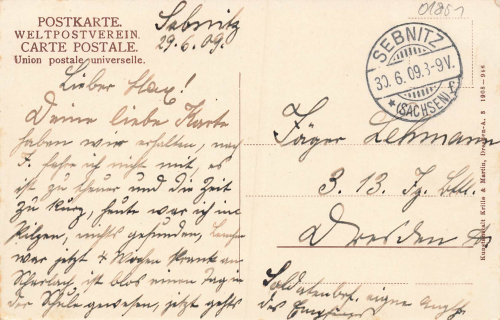 01861
POSTKARTE.
WELTPOSTVEREIN.
CARTE POSTALE.
Union postale universelle.
Sebnitz
29.6.09.
SEBNITZ
30.6.09.8-9V.
*(SACHSEN) f
Lieber Max!
Deine liebe Karte
haben wir erhalten, nach
F. fahre ich nicht mit, es
ist zu theuer und die Zeit
zu kurz, heute war ich in
Pilzen, nichts gefunden,
war jetzt 4 Wochen krank an
Scharlach, ist blos einen Tag in
der Schule gewesen, jetzt gehts
Jäger Lehmann
3. 13. Jg. Btl.
Dresden
Soldatenbrf. eigne Anglh.
des Empfängers
Kunstanstalt Krille & Martin, Dresden-A. 5 1908 - 946